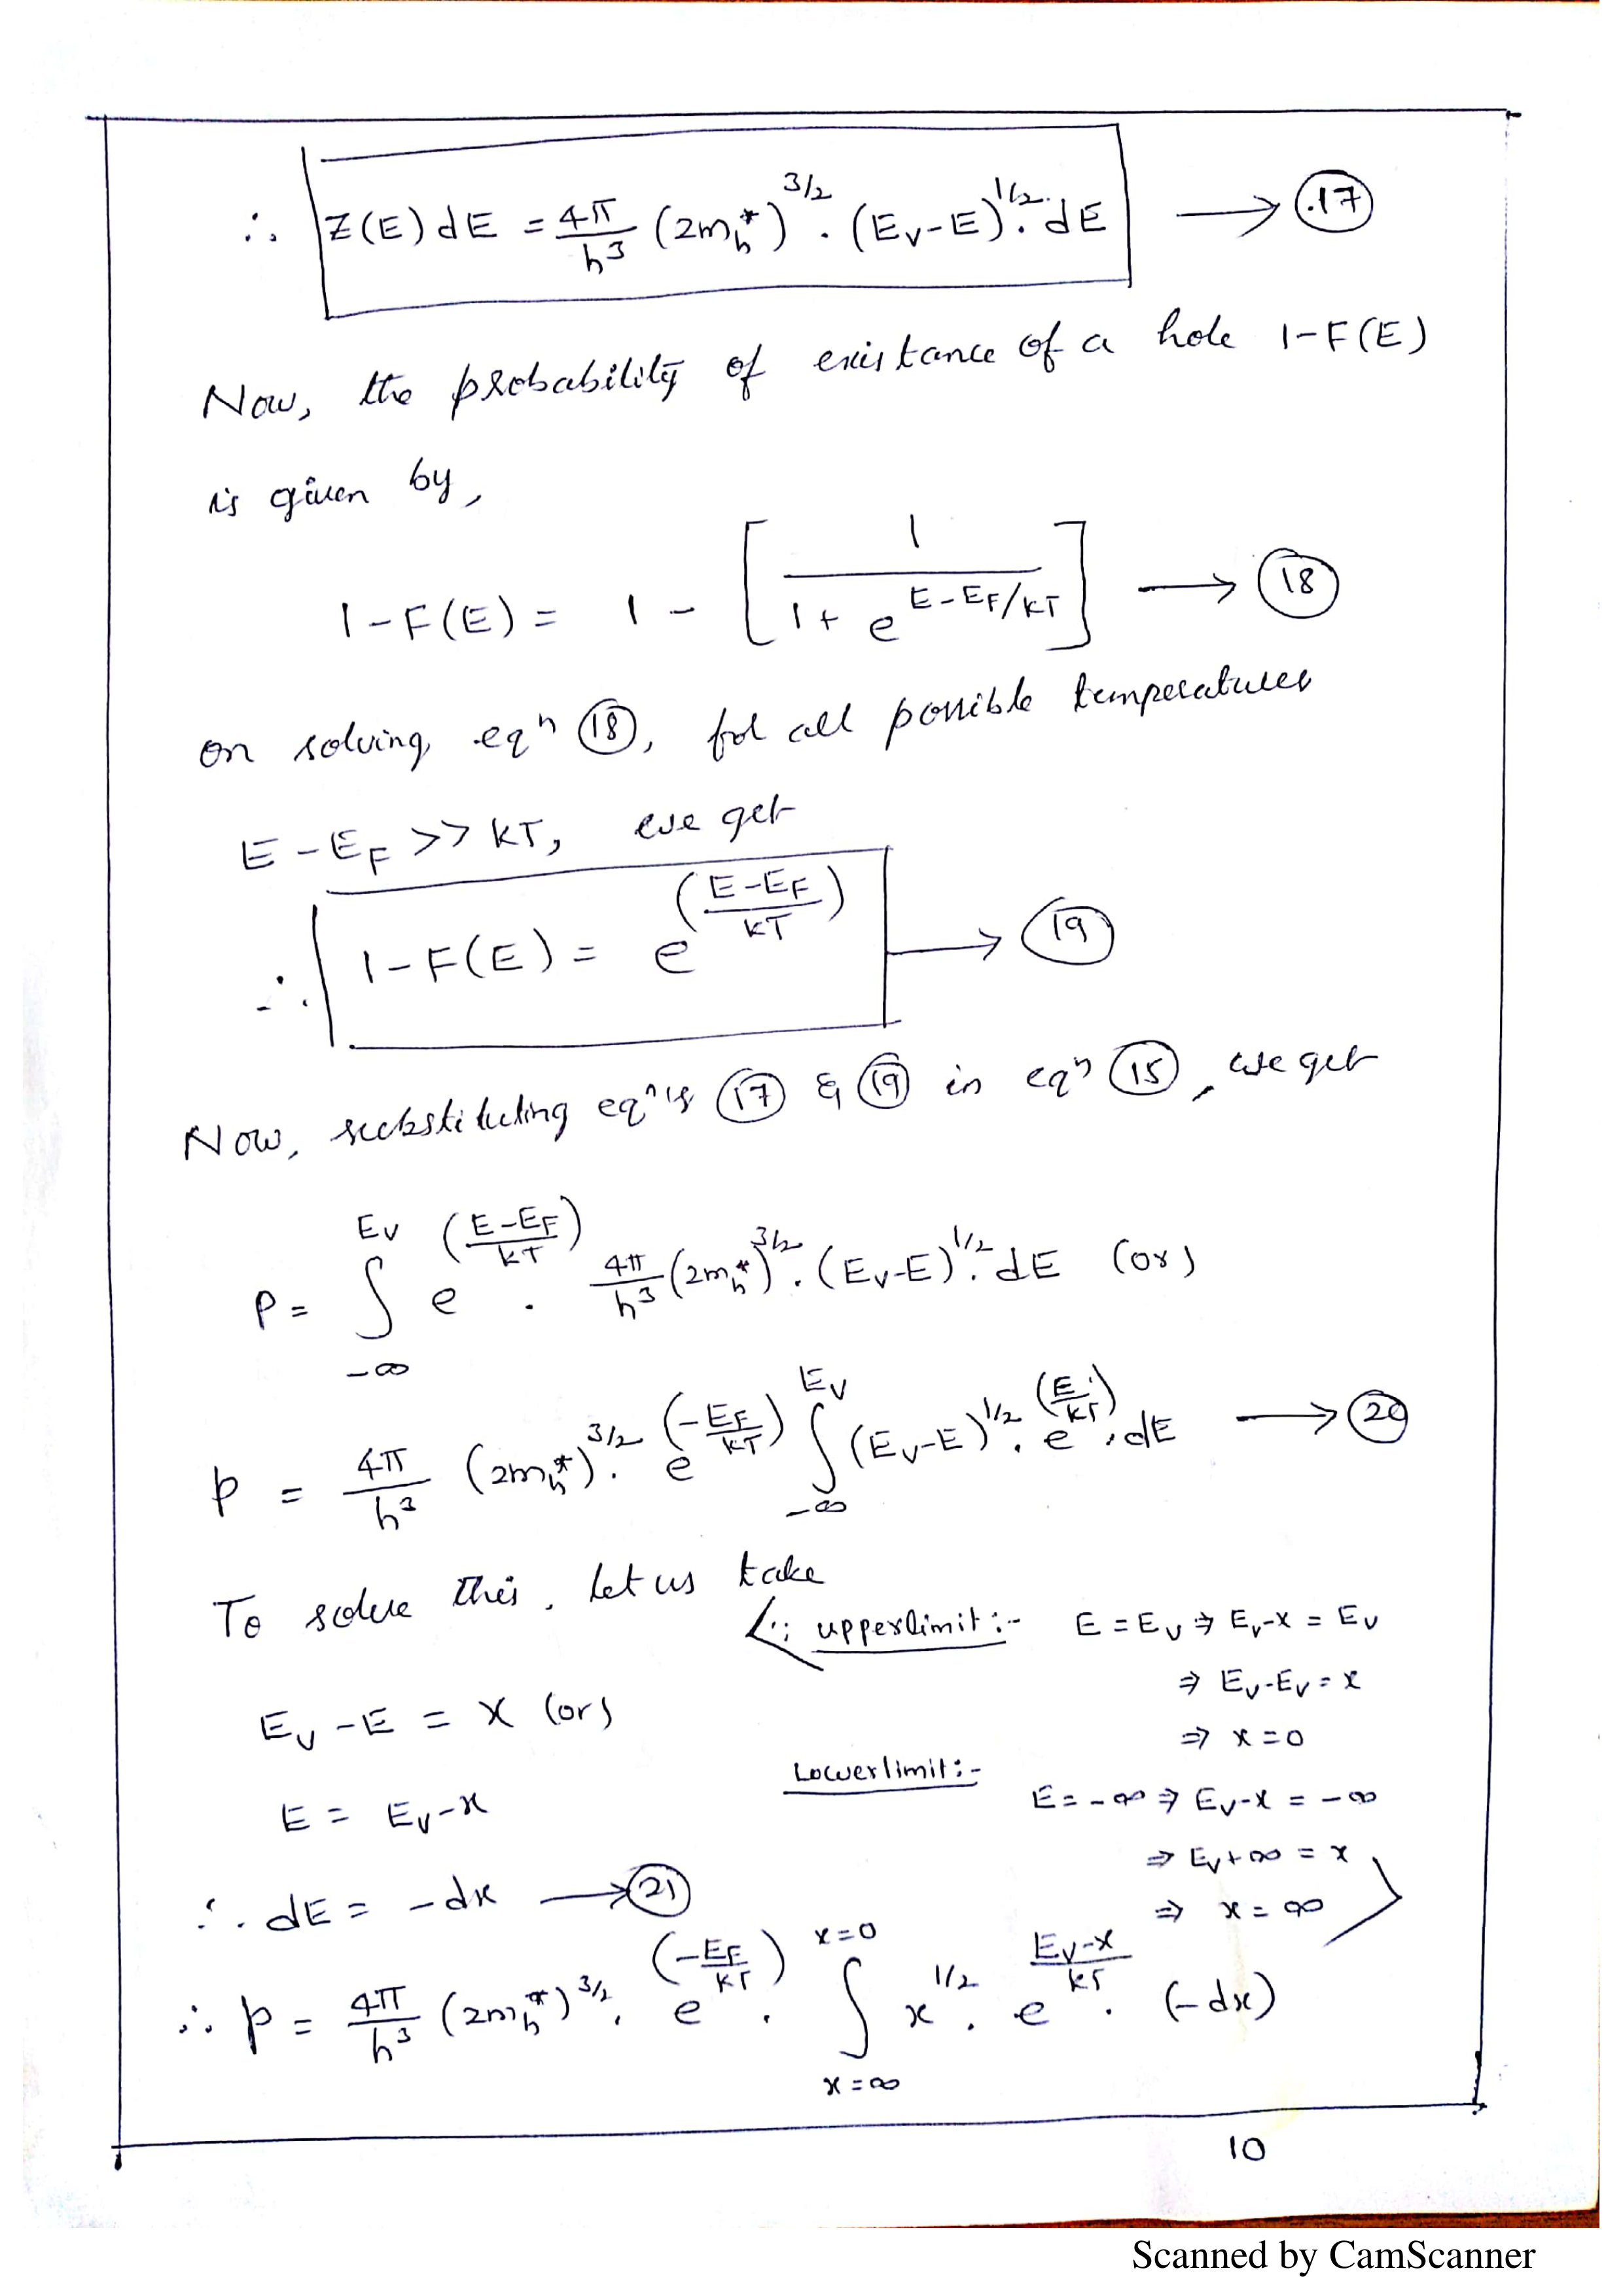 ∴ Z(E) dE = 4π/h³ (2m*h)^3/2 . (Ev-E)^1/2 . dE → (17)
Now, the probability of existance of a hole 1-F(E)
is given by,
1-F(E) = 1 - [1/(1+e^(E-EF/kT))] → (18)
on solving eqⁿ (18), for all possible temperatures
E-EF >> kT, we get
∴ 1-F(E) = e^((E-EF)/kT) → (19)
Now, substituting eqⁿ's (17) & (19) in eqⁿ (15), we get
P = ∫_{-∞}^{Ev} e^((E-EF)/kT) . 4π/h³ (2m*h)^3/2 . (Ev-E)^1/2 . dE (or)
p = 4π/h³ (2m*h)^3/2 . e^(-EF/kT) ∫_{-∞}^{Ev} (Ev-E)^1/2 . e^(E/kT) . dE → (20)
To solve this, let us take
∵ upperlimit:- E = Ev ⇒ Ev-x = Ev
⇒ Ev-Ev = x
Ev-E = x (or)
⇒ x = 0
Lowerlimit:-
E = -∞ ⇒ Ev-x = -∞
E = Ev-x
⇒ Ev+∞ = x
∴ dE = -dx → (21)
⇒ x = ∞
∴ p = 4π/h³ (2m*h)^3/2 . e^(-EF/kT) . ∫_{x=∞}^{x=0} x^1/2 . e^((Ev-x)/kT) . (-dx)
10
Scanned by CamScanner